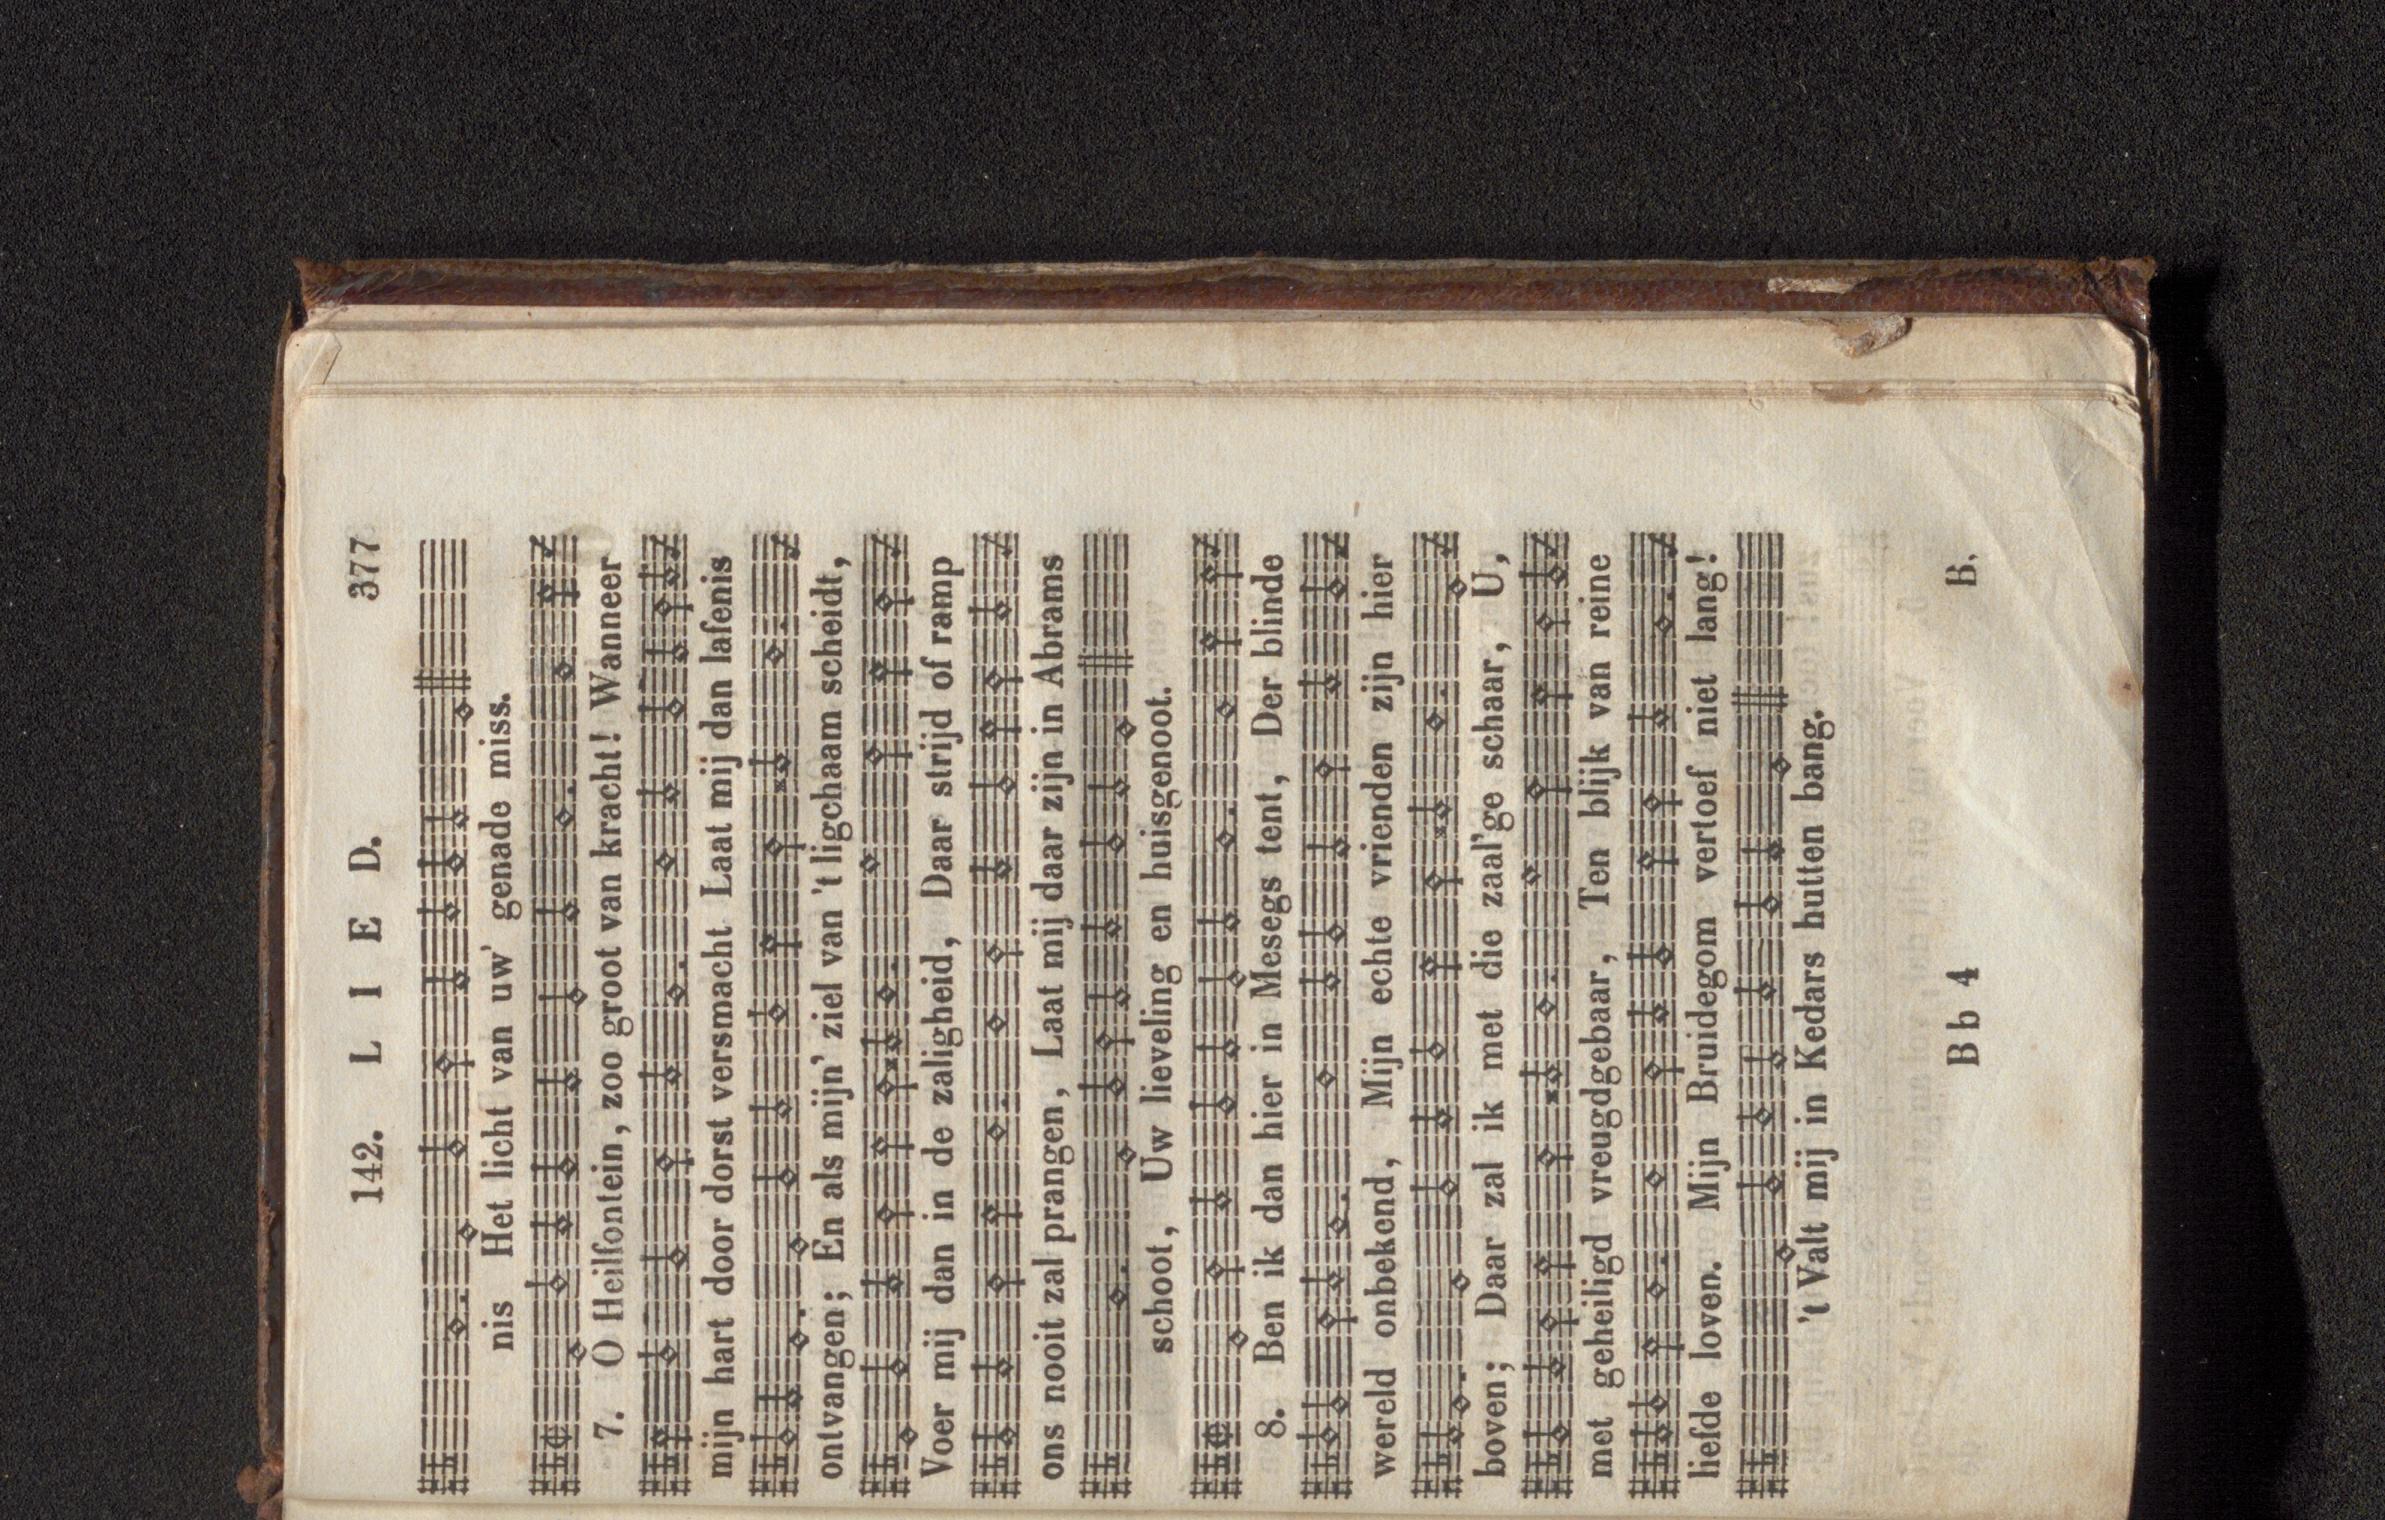 142. L I E D. 377
nis Het licht van uw' genade miss.
7. O Heilfontein, zoo groot van kracht! Wanneer
mijn hart door dorst versmacht Laat mij dan lafenis
ontvangen; En als mijn' ziel van 't ligchaam scheidt,
Voer mij dan in de zaligheid, Daar strijd of ramp
ons nooit zal prangen, Laat mij daar zijn in Abrams
schoot, Uw lieveling en huisgenoot.
8. Ben ik dan hier in Mesegs tent, Der blinde
wereld onbekend, Mijn echte vrienden zijn hier
boven; Daar zal ik met die zaal'ge schaar, U,
met geheiligd vreugdgebaar, Ten blijk van reine
liefde loven. Mijn Bruidegom vertoef niet lang!
't Valt mij in Kedars hutten bang.
B b 4 B.